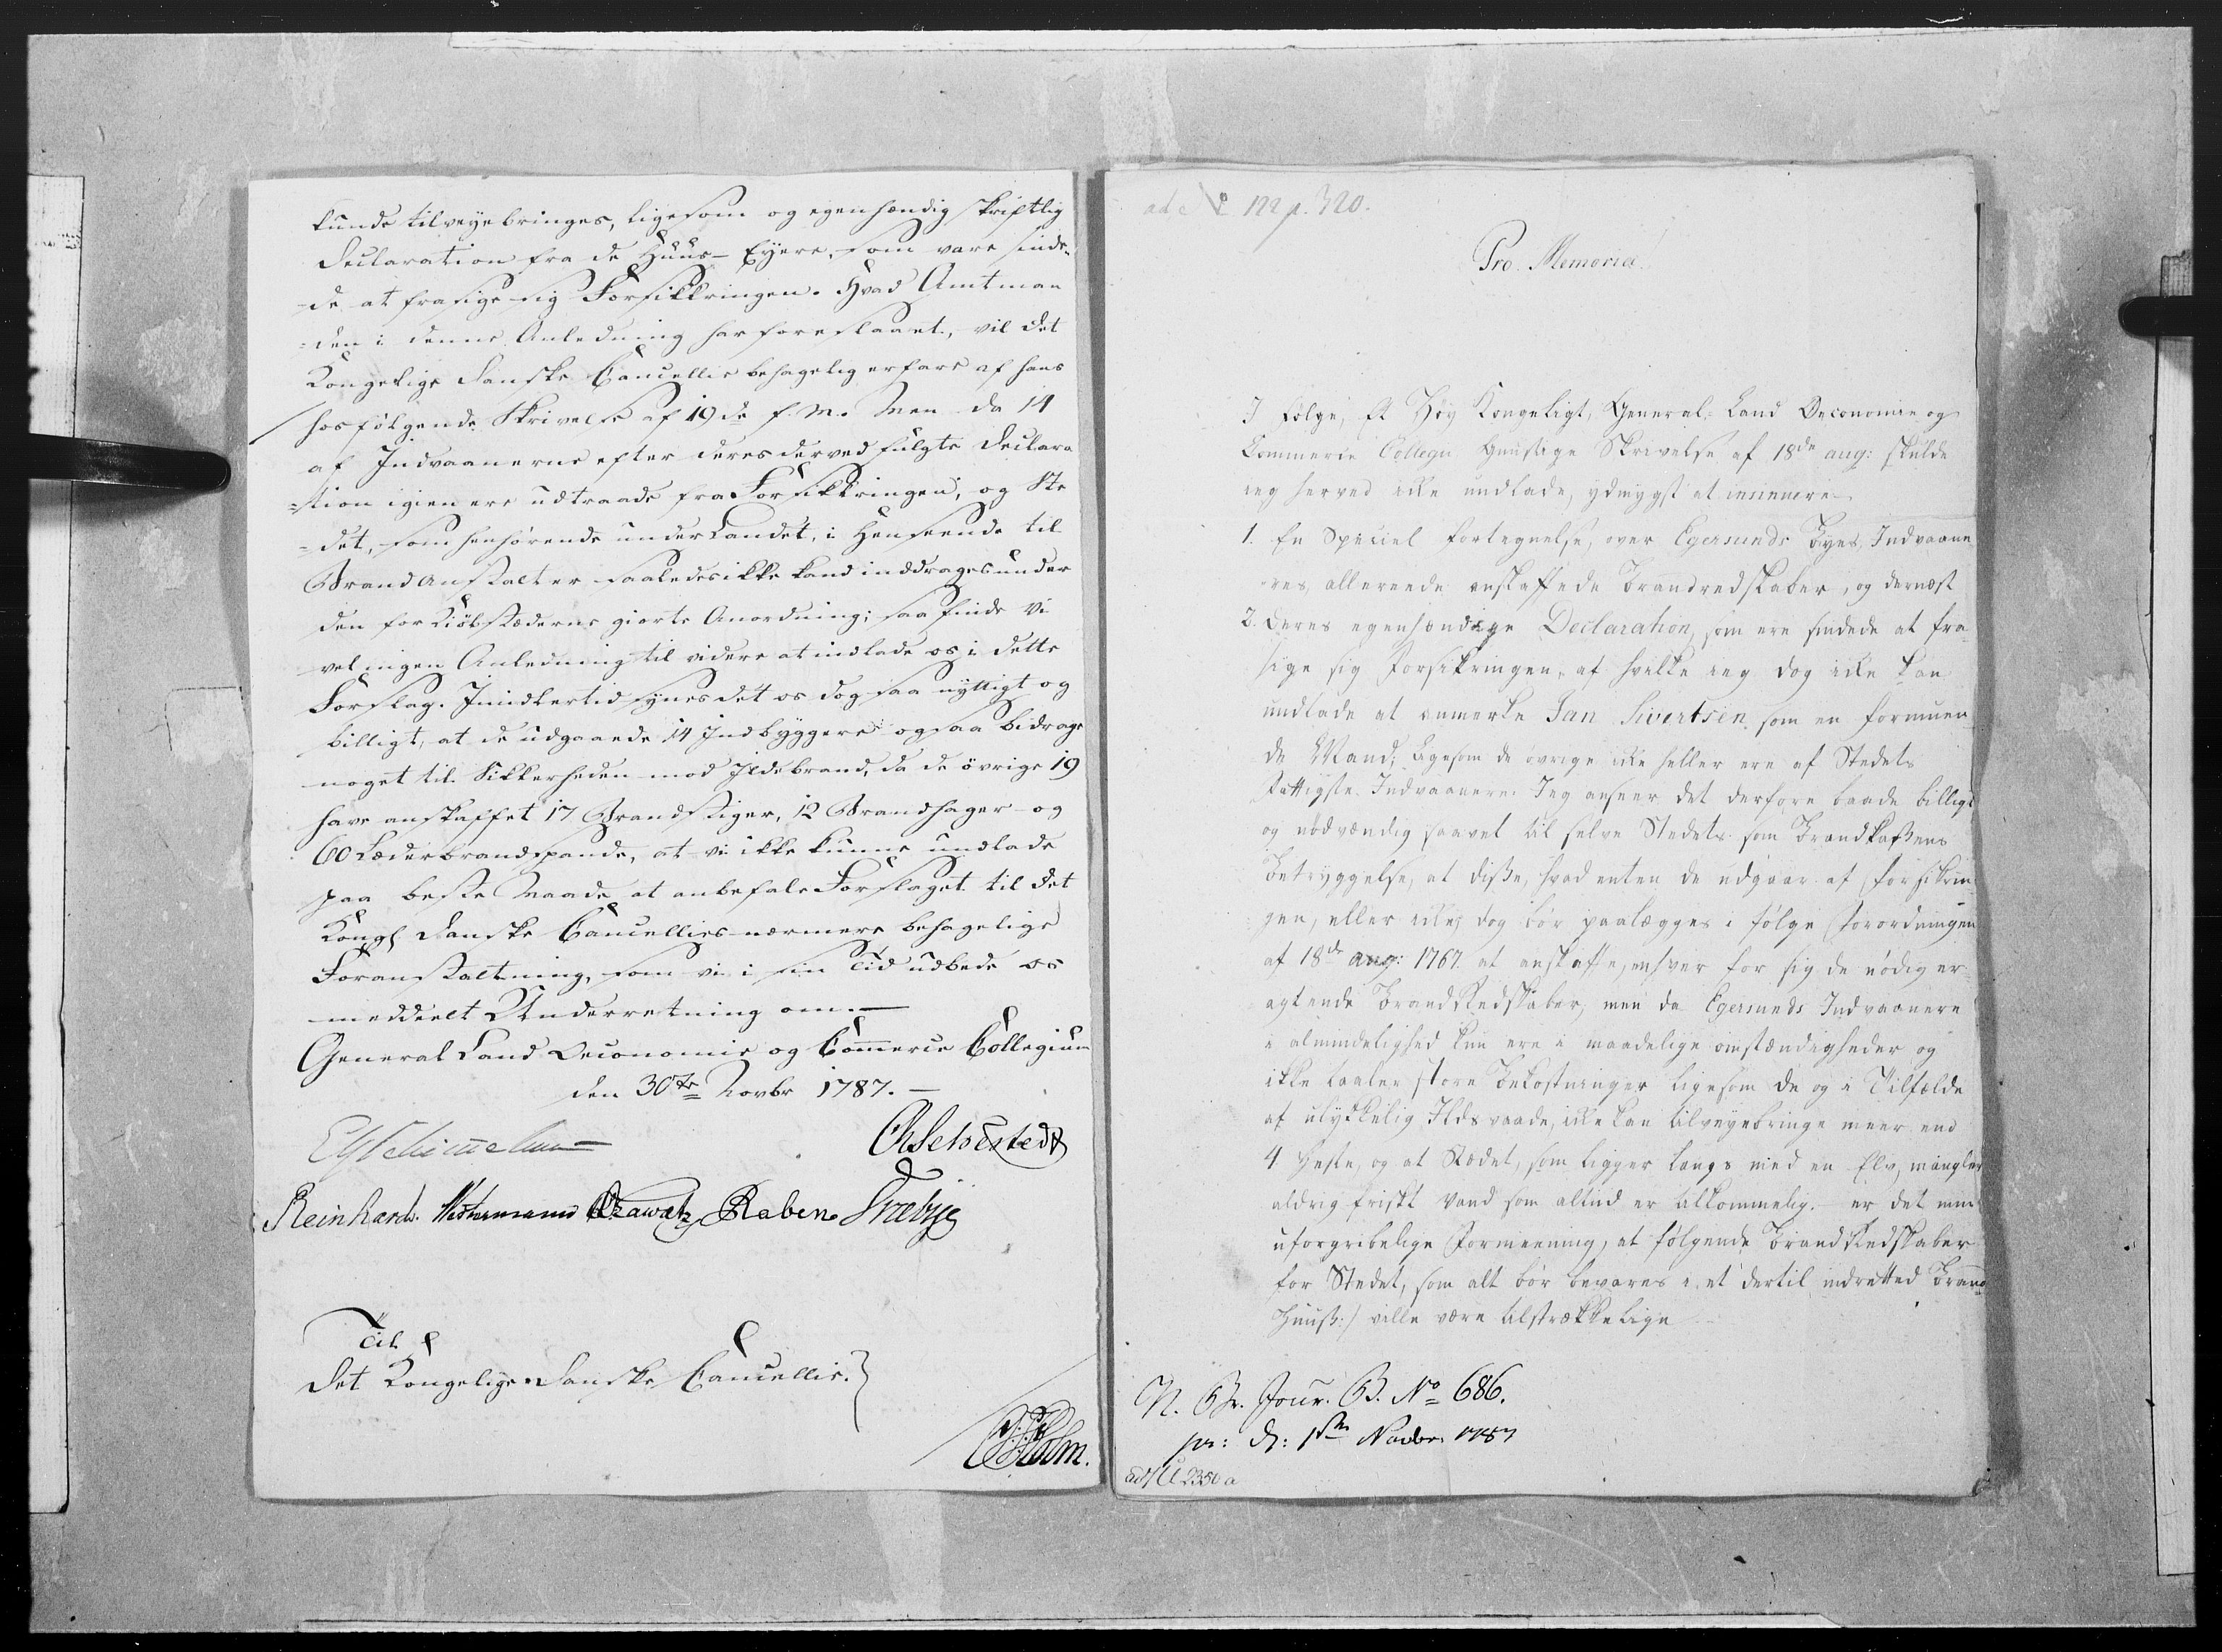 kunde tilveyebringes, ligesom og egenhændig skriftlig
Declaration fra de Huus-Eyere, som vare sinde-
-de at frasige sig Forsikkringen. Hvad Amtman
-den i denne Anledning har foreslaaet, vil det
Kongelige Danske Cancellie behagelig erfare af hans
hosfølgende Skrivelse af 19de f. M. Men da 14
af Indvaanerne efter deres derved fulgte Declara
-tion igien ere udtraade fra Forsikkringen, og Ste
-det, som henhørende under Landet, i Henseende til
Brandanstalter saaledes ikke kand inddrages under
den for Kiøbstæderne giorte Anordning; saa finde vi
vel ingen Anledning til videre at indlade os i dette
Forslag. Imidlertid synes det os dog saa nyttigt og
billigt, at de udgaaede 14 Indbyggere ogsaa bidrage
noget til Sikkerheden mod Ildebrand, da de øvrige 19
have anskaffet 17 Brandstiger, 12 Brandhager og
60 Læderbrandspande, at vi ikke kunne undlade
paa beste Maade at anbefale Forslaget til det
Kongl Danske Cancellies nærmere behagelige
Foranstaltning, som vi i sin Tid udbede os
meddeelt Underretning om.
General Land Oeconomie og Commerce Collegium
den 30te Novbr 1787.
Reinhard. Westermann Prawetz Raben Træbye
Til
Det Kongelige Danske Cancellie.
Holm.
122 p. 320.
Pro Memoria
I Følge, Et Høy Kongeligt, General-Land Oeconomie og
Commerce Collegii Gunstige Skrivelse af 18de aug: skulde
ieg herved icke undlade, ydmygst at insinuere
1. En Speciel fortegnelse, over Egersunds Byes Indvaane
res, allereede anskaffede brandredskaber, og dernæst
2. Deres egenhændige Declaration, som ere sindede at fra
sige sig Forsikringen, af hvilke ieg dog icke kan
undlade at anmerke Jan Sivertsen som en formuen
de Mand; Ligesom de øvrige icke heller ere af Stedets
fattigste Indvaanere. Jeg anseer det derfore baade billigt
og nødvændig saavel til selve Stedets som Brandkaßens
Betryggelse, at diße, hvad enten de udgaar af forsikrin
gen, eller icke, dog bør paalægges i følge Forordningen
af 18de aug: 1767. at anskaffe, enhver for sig de nødig er
agtende Brand Redskaber, men da Egersunds Indvaanere
i almindelighed kun ere i maadelige omstændigheder og
ikke taaler store Bekostninger ligesom de og i Tilfælde
af ulykkelig Ilds vaade, icke kan tilveyebringe meer end
4 Heste, og at Stædet, som ligger langs med en Elv, mangler
aldrig friskt vand som altiid er tilkommelig. er det min
uforgribelige Formeening, at følgende Brand Redskaber
for Stedet, som alt bør bevares i et dertil indrettet Brand
Huuß:/ ville være tilstrækkelige
N. Br. Jour. B. No 686.
pr: d: 1ste Novbr 1787
2350 a